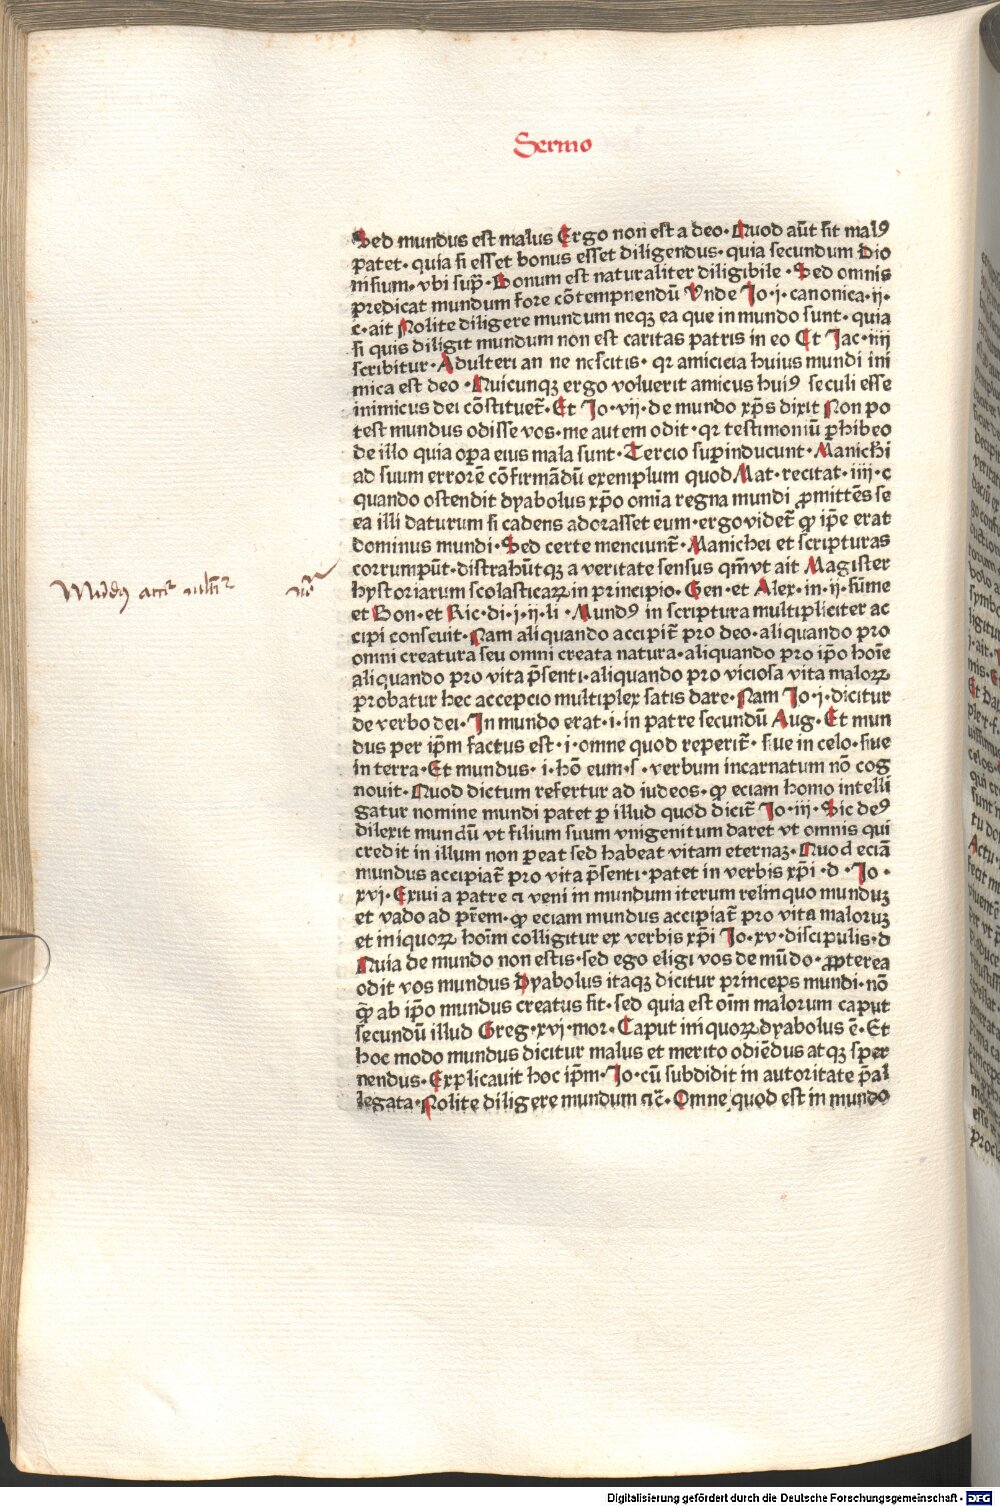 Sermo
Sed mundus est malus Ergo non est a deo· Quod aūt sit malꝰ
patet· quia si esset bonus esset diligendus· quia secundum Dio
nisium· vbi sup̄· Bonum est naturaliter diligibile · Sed omnis
predicat mundum fore cōtempnendū Vnde Jo·i·canonica·ii·
c·ait Nolite diligere mundum neqꝫ ea que in mundo sunt· quia
si quis diligit mundum non est caritas patris in eo Et Jac·iiij
scribitur·Adulteri an ne nescitis· qr amicicia huius mundi ini
mica est deo ·Quicunqꝫ ergo voluerit amicus huiꝰ seculi esse
inimicus dei cōstituet᷑·Et Jo·vij·de mundo xp̄s dixit Non po
test mundus odisse vos·me autem odit·qr testimoniū ꝑhibeo
de illo quia oꝑa eius mala sunt·Tercio suꝑinducunt·Manichi
ad suum errorē cōfirmādū exemplum quod Mat·recitat·iiij·c
quando ostendit dyabolus xp̄o omīa regna mundi ꝓmittēs se
ea illi daturum si cadens adorasset eum·ergo videt᷑ ꝙ ip̄e erat
dominus mundi·Sed certe menciunt᷑·Manichei et scripturas
corrumpūt·distrahūtqꝫ a veritate sensus qm̄vt ait Magister
hystoriarum scolasticaꝝ in principio·Gen·et Alex·in·ij·sūme
et Bon·et Ric·di·j·ij·li ·Mundꝰ in scriptura multipliciter ac
cipi conseuit·Nam aliquando accipit᷑ pro deo·aliquando pro
omni creatura seu omni creata natura·aliquando pro ip̄o hoīe
aliquando pro vita p̄senti·aliquando pro viciosa vita maloꝝ
probatur hec accepcio multiplex satis dare·Nam Jo·j·dicitur
de verbo dei·In mundo erat·i·in patre secundū Aug·Et mun
dus per ip̄m factus est·i·omne quod reperit᷑· siue in celo·siue
in terra·Et mundus· i·hō eum·s·verbum incarnatum nō cog
nouit·Quod dictum refertur ad iudeos·ꝙ eciam homo intelli
gatur nomine mundi patet ꝑ illud quod dicit᷑ Jo·iij·Sic deꝰ
dilexit mundū vt filium suum vnigenitum daret vt omnis qui
credit in illum non ꝑeat sed habeat vitam eternaꝫ·Quod eciā
mundus accipiat᷑ pro vita p̄senti·patet in verbis xp̄i ·d ·Jo·
xvj·Exiui a patre ꝛ veni in mundum iterum relinquo munduꝫ
et vado ad pr̄em·ꝙ eciam mundus accipiat᷑ pro vita maloruꝫ
et iniquoꝝ hoīm colligitur ex verbis xp̄i Jo·xv·discipulis·d
Quia de mundo non estis·sed ego eligi vos de mūdo·ꝓpterea
odit vos mundus Dyabolus itaqꝫ dicitur princeps mundi·nō
ꝙ ab ip̄o mundus creatus sit·sed quia est oīm malorum caput
secundū illud Greg·xvj·mor·Caput iniquoꝝ dyabolus ē·Et
hoc modo mundus dicitur malus et merito odiēdus atqꝫ sper
nendus·Explicauit hoc ip̄m·Jo·cū subdidit in autoritate p̄al
legata·Nolite diligere mundum ꝛc̄·Omne quod est in mundo
Digitalisierung gefördert durch die Deutsche Forschungsgemeinschaft - DFG